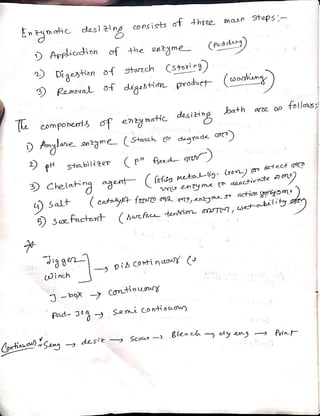 Enzymatic desizing consists of three main steps:-
1) Application of the enzyme (Padding)
2) Digestion of starch (Storing)
3) Removal of digestion product (washing)
The components of enzymatic desizing bath are as follows:
1) Amylase enzyme (Starch degrade
2) pH stabilizer (pH fixed
3) Chelating agent (metal-eg: iron,) detect
enzyme deactivate
4) Salt (catalyst enzyme action
5) Surfactant (Surface tension wet-ability
Jigger
Winch → Discontinuous (
J-box → Continuous
Pad-Jig → Semi Continuous
(Continuous) Seng → desiz → Scour → Bleach → dyeing → Print